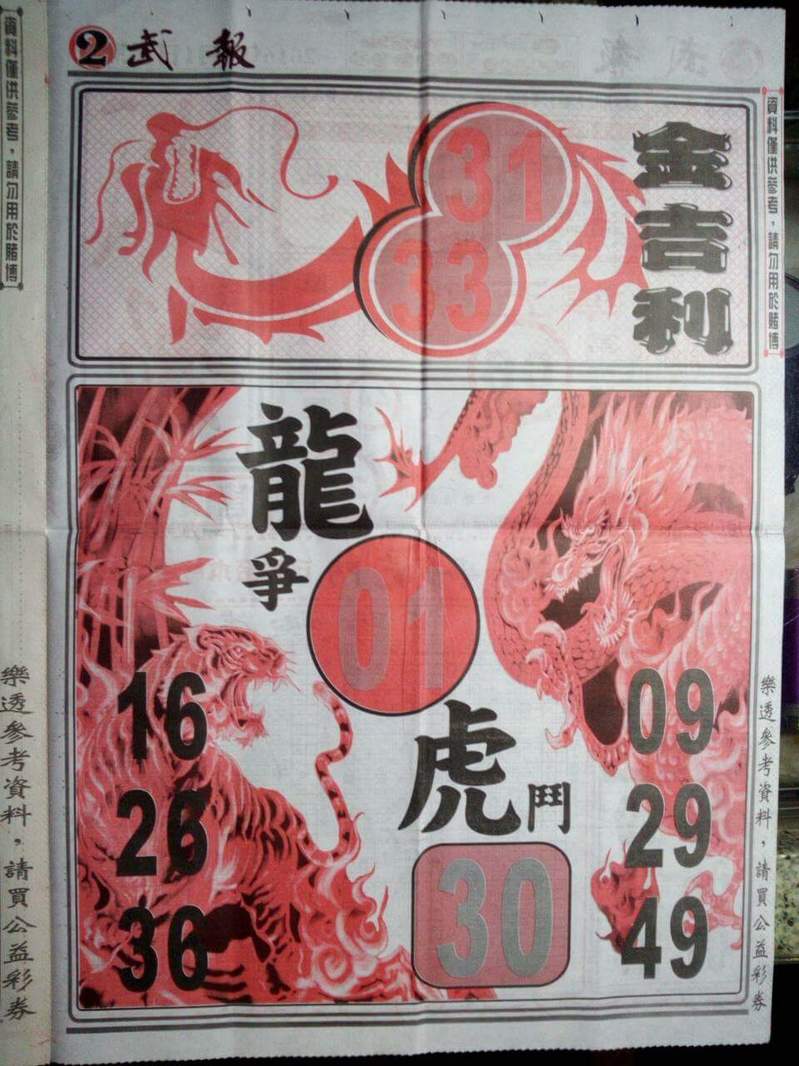 2 武報
資料僅供參考，請勿用於賭博
資料僅供參考，請勿用於賭博
金吉利
31
33
龍
爭
01
虎
鬥
30
16
26
36
09
29
49
樂透參考資料，請買公益彩券
樂透參考資料，請買公益彩券